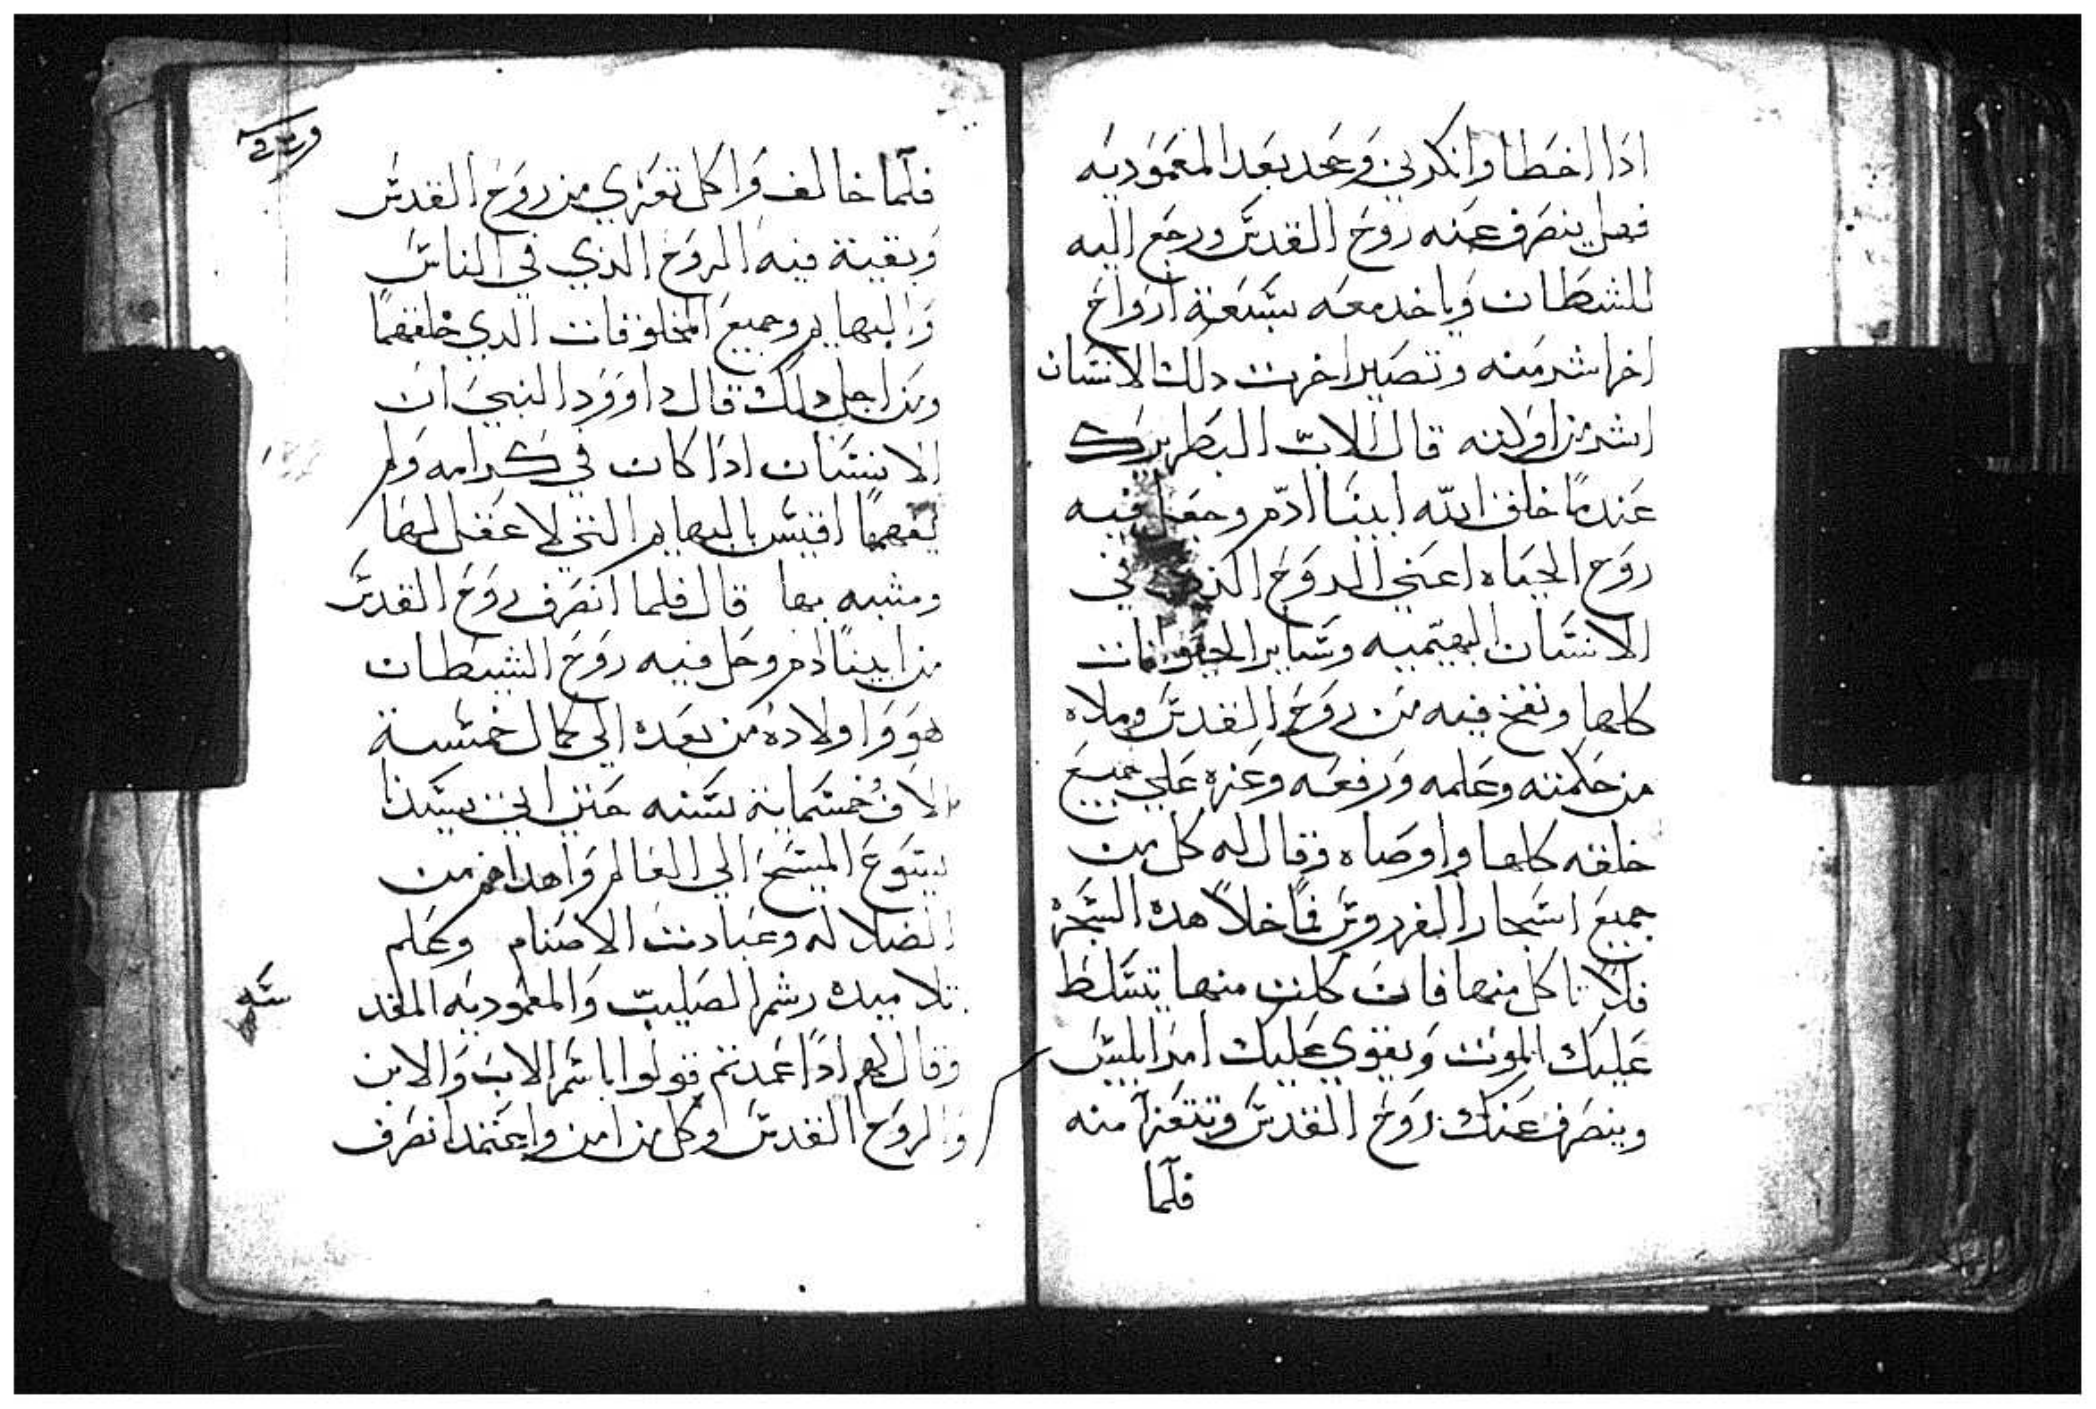 ادا اخطا وانكرني وجحد بعد المعموديه
فهل ينصرف عنه روح القدس ورجع اليه
للشطان وياخد معه سبعة ارواح
اخرا شر منه وتصير اخرت دلك الانسان
اشر من اولته قال الاب البطريرك
عندما خلق الله ابينا ادم وجعل فيه
روح الحياه اعني الروح الذي في
الانسان البهيميه وساير الحيوانات
كلها ونفخ فيه من روح القدس وملاه
من حكمته وعلمه ورفعه وعزه علي جميع
خلقه كلها واوصاه وقال له كل من
جميع اشجار الفردوس فما خلا هده الشجره
فلا تاكل منها فان كلت منها يتسلط
عليك الموت ويقوي عليك امر ابليس
وينصرف عنك روح القدس وتتعرا منه
فلما
فلما خالف واكل تعري من روح القدس
وبقية فيه الروح الذي في الناس
والبهايم وجميع المخلوقات الدي خلقهما
ومن اجل دلك قال داوود النبي ان
الانسان ادا كان في كرامه ولم
يفهمها اقيس بالبهايم التي لا عقل لها
ومشبه بها قال فلما انصرف روح القدس
من ابينا ادم وحل فيه روح الشيطان
هو واولاده من بعده الي كمال خمسة
الاف وخمسماية سنه حتي اتي سيدنا
يسوع المسيح الي العالم واهداهم من
الضلاله وعبادت الاصنام وعلم
تلاميده رشم الصليب والمعموديه المقد
سه
وقال لهم ادا عمدتم قولوا باسم الاب والابن
والروح القدس اوكل من امن واعتمد انصرف